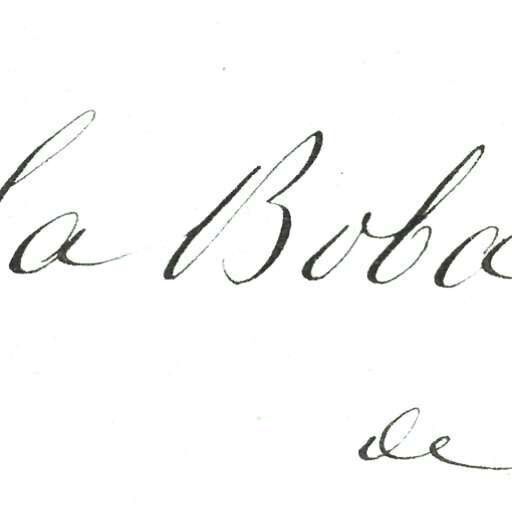 la Boba
de